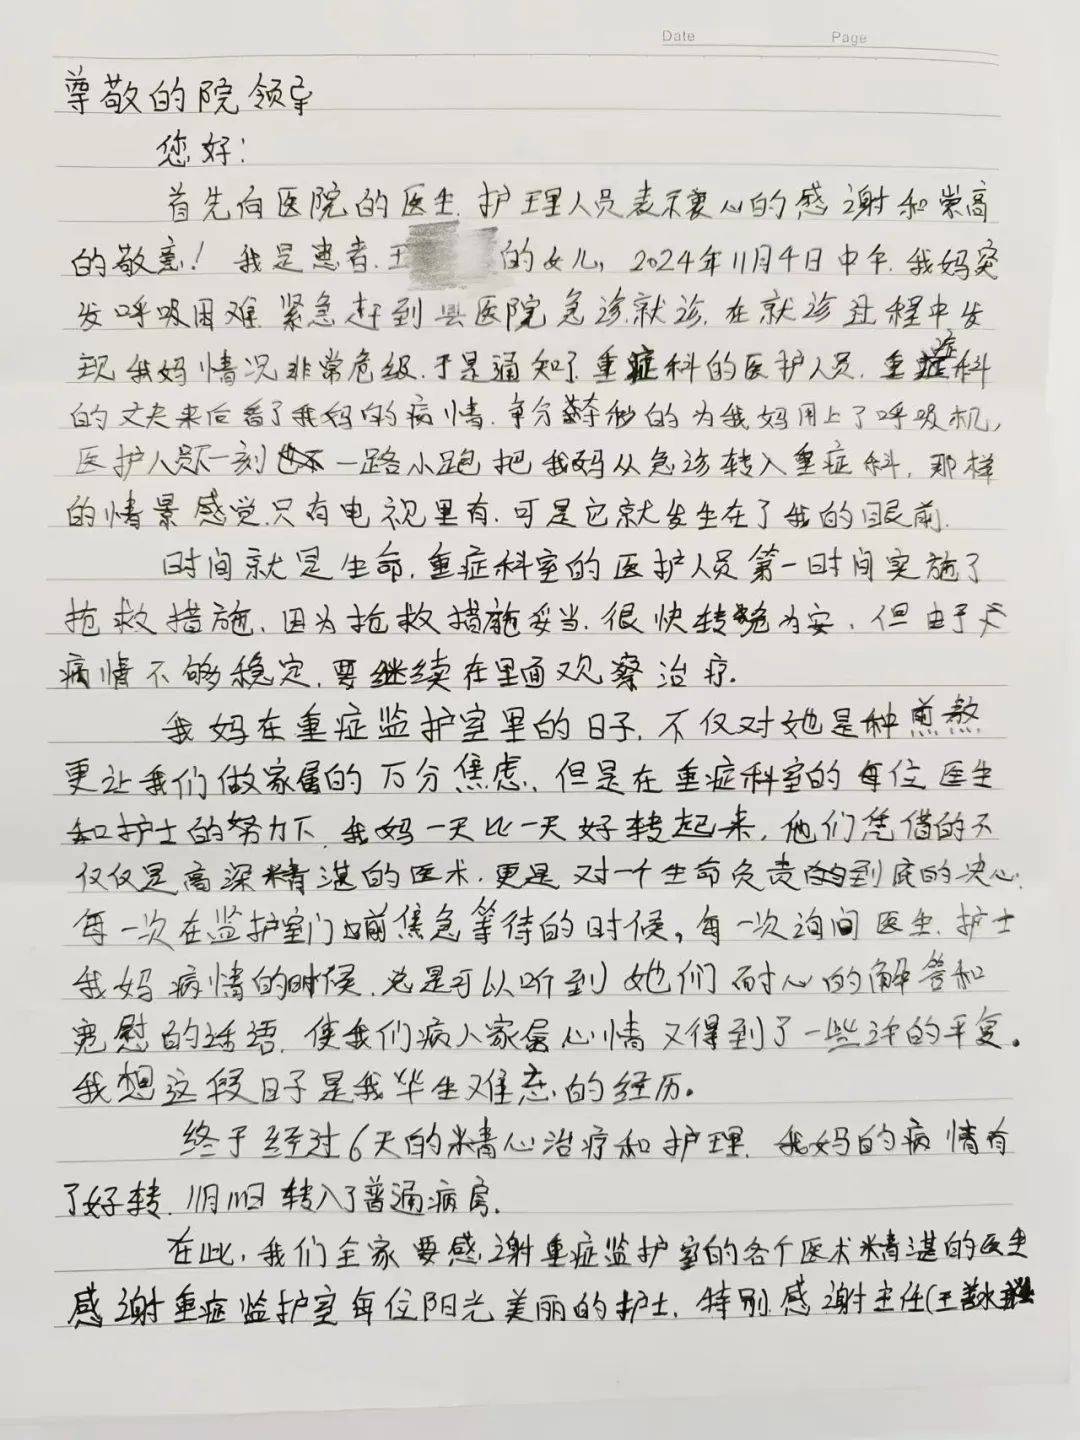 Date Page
尊敬的院领导
您好！
首先向医院的医生、护理人员表示衷心的感谢和崇高
的敬意！我是患者、王 的女儿，2024年11月4日中午、我妈突
发呼吸困难 紧急赶到县医院急诊就诊、在就诊过程中发
现我妈情况非常危级、于是通知了重症科的医护人员、重症科
的丈夫来后看了我妈的病情、争分夺秒的为我妈用上了呼吸机，
医护人员一刻不 一路小跑把我妈从急诊转入重症科，那样
的情景感觉只有电视里有、可是它就发生在了我的眼前、
时间就是生命、重症科室的医护人员第一时间实施了
抢救措施、因为抢救措施妥当、很快转危为安、但由于
病情不够稳定、要继续在里面观察治疗。
我妈在重症监护室里的日子、不仅对她是种煎熬
更让我们做家属的万分焦虑、但是在重症科室的每位医生
和护士的努力下、我妈一天比一天好转起来，他们凭借的不
仅仅是高深精湛的医术、更是对一个生命负责到底的决心、
每一次在监护室门前焦急等待的时候，每一次询问医生、护士
我妈病情的时候、总是可以听到她们耐心的解答和
宽慰的话语、使我们病人家属心情又得到了一些许的平复。
我想这段日子是我毕生难忘的经历。
终于经过6天的精心治疗和护理、我妈的病情有
了好转、11月11日转入了普通病房、
在此，我们全家要感谢重症监护室的各个医术精湛的医生
感谢重症监护室每位阳光美丽的护士、特别感谢主任(王